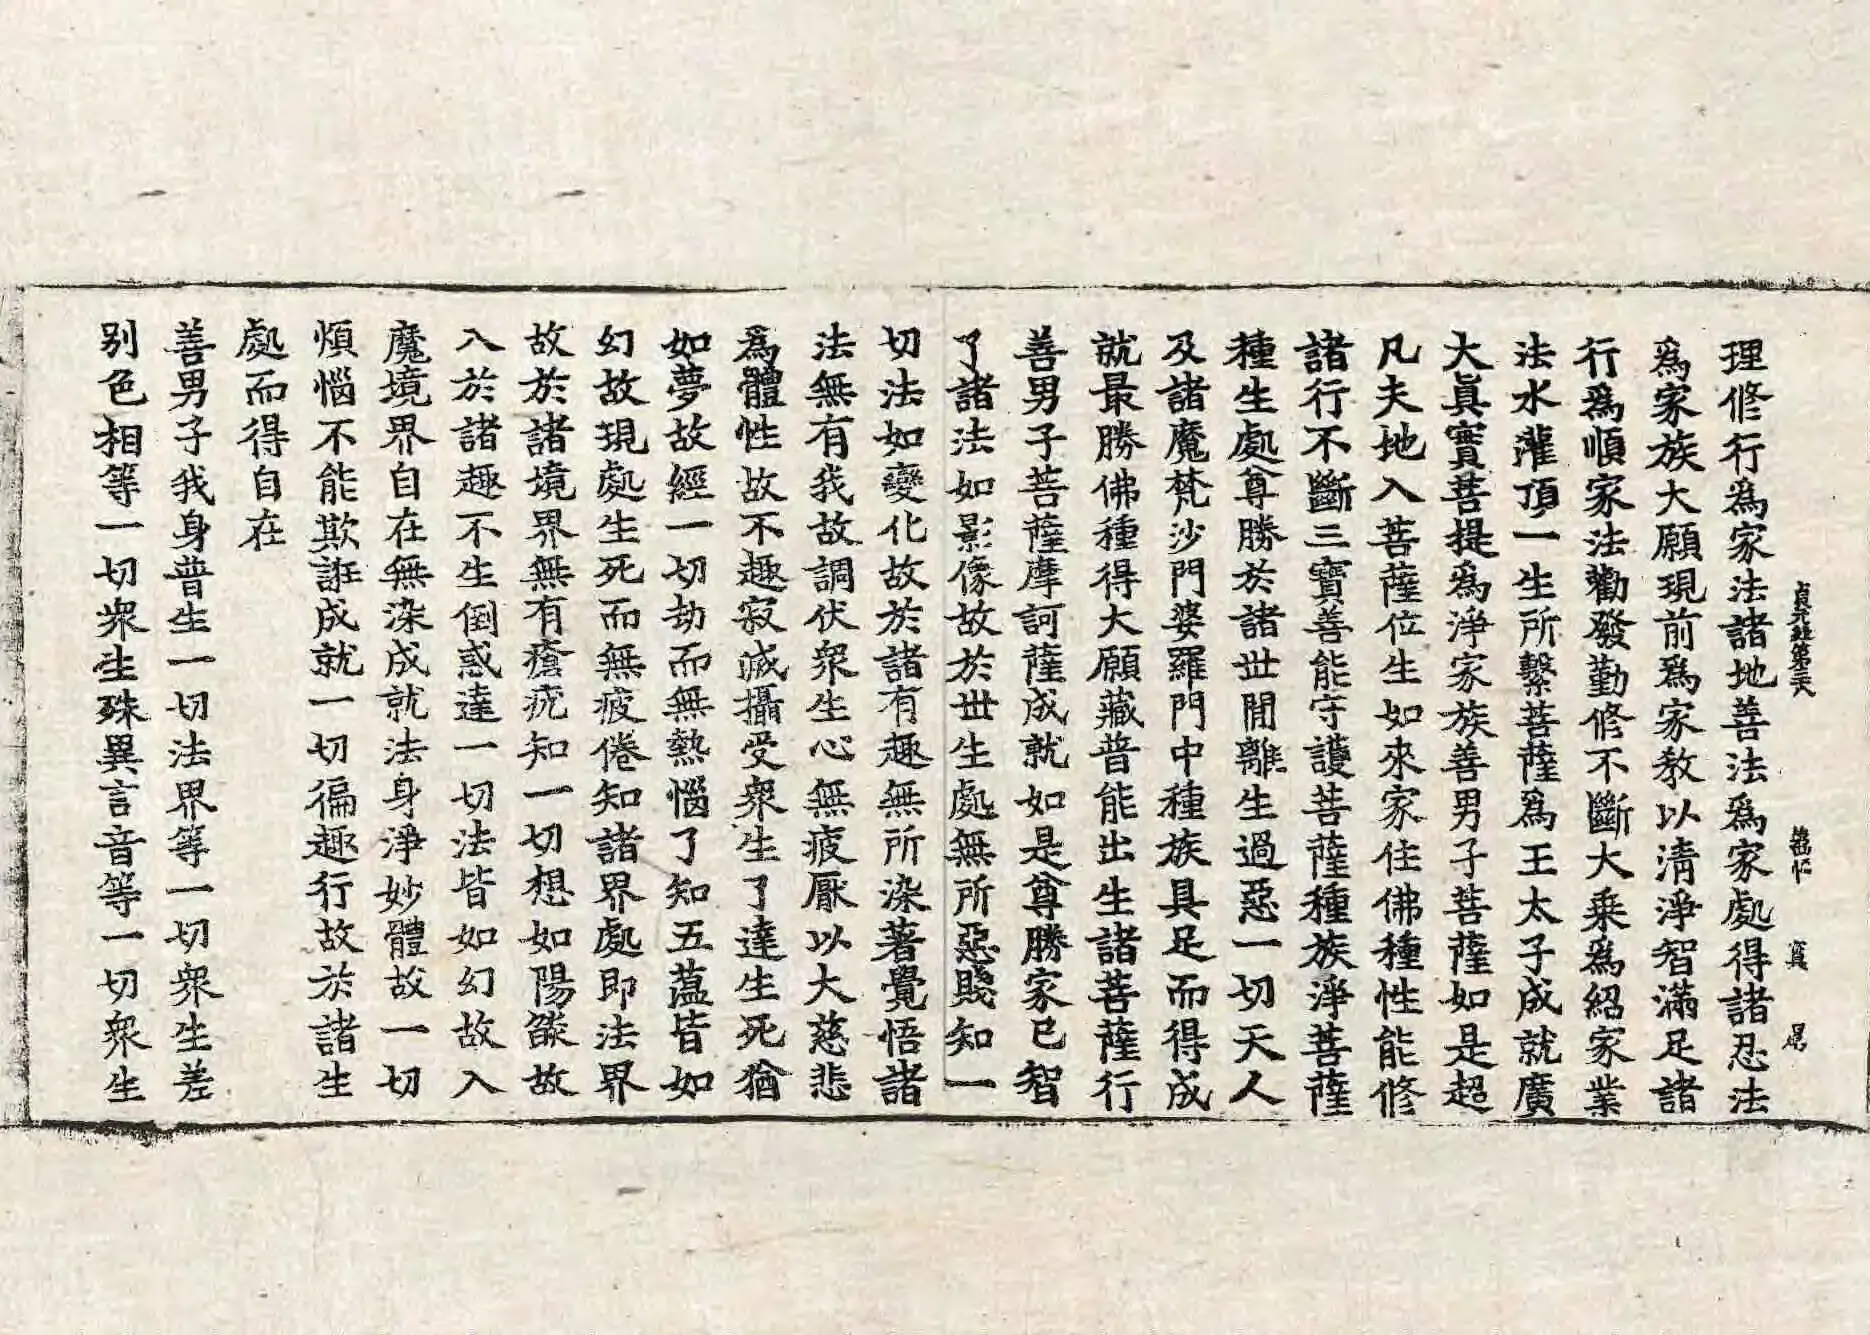 貞元經第三十八
理修行為家法諸地善法爲家處得諸忍法
爲家族大願現前爲家教以清淨智滿足諸
行爲順家法勸發勤修不斷大乘爲紹家業
法水灌頂一生所繫菩薩爲王太子成就廣
大眞實菩提爲淨家族善男子菩薩如是超
凡夫地入菩薩位生如來家住佛種性能修
諸行不斷三寶善能守護菩薩種族淨菩薩
種生處尊勝於諸世間離生過惡一切天人
及諸魔梵沙門婆羅門中種族具足而得成
就最勝佛種得大願藏普能出生諸菩薩行
善男子菩薩摩訶薩成就如是尊勝家已智
了諸法如影像故於世生處無所惡賤知一
切法如變化故於諸有趣無所染著覺悟諸
法無有我故調伏衆生心無疲厭以大慈悲
爲體性故不趣寂滅攝受衆生了達生死猶
如夢故經一切劫而無熱惱了知五蕴皆如
幻故現處生死而無疲倦知諸界處即法界
故於諸境界無有瘡疣知一切想如陽燄故
入於諸趣不生倒惑達一切法皆如幻故入
魔境界自在無染成就法身淨妙體故一切
煩惱不能欺誑成就一切徧趣行故於諸生
處而得自在
善男子我身普生一切法界等一切衆生差
别色相等一切衆生殊異言音等一切衆生